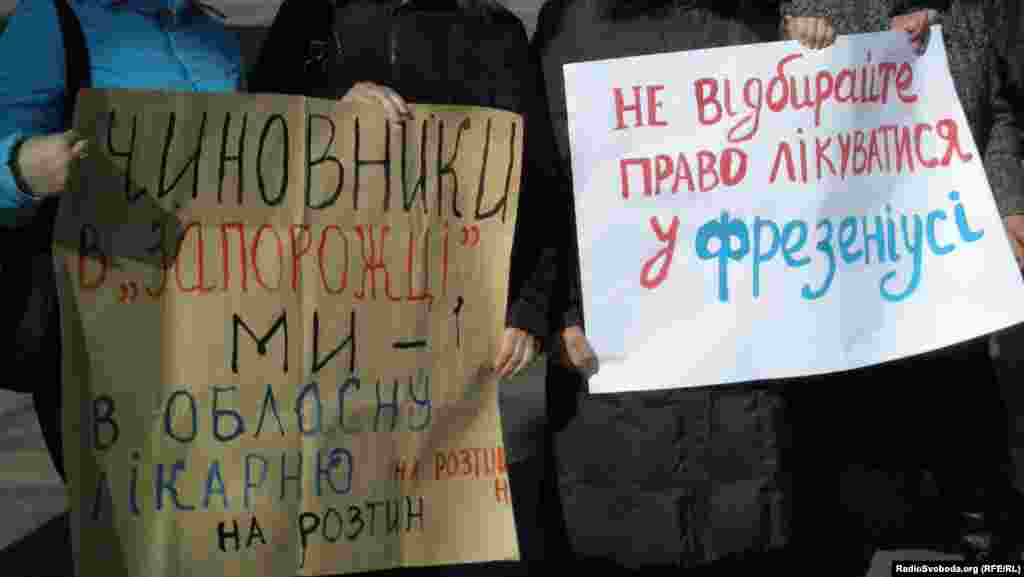 ЧИНОВНИКИ
В „ЗАПОРОЖЦІ”
МИ –
В ОБЛАСНУ
ЛІКАРНЮ НА РОЗТИН
Н
НА РОЗТИН
НЕ ВІДБИРАЙТЕ
ПРАВО ЛІКУВАТИСЯ
У ФРЕЗЕНІУСІ
RadioSvoboda.org (RFE/RL)